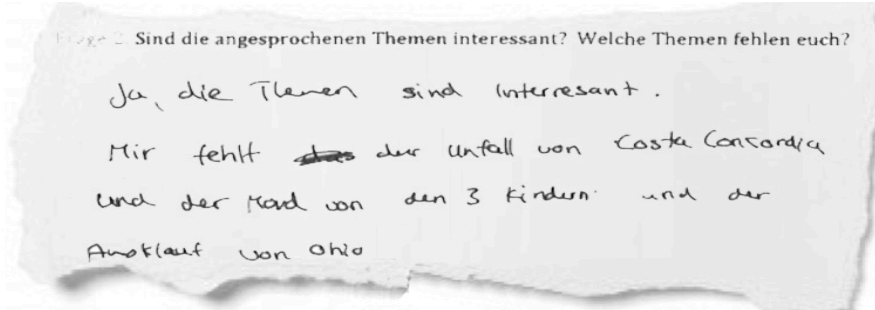 Frage 2. Sind die angesprochenen Themen interessant? Welche Themen fehlen euch?
Ja, die Themen sind interresant.
Mir fehlt der Unfall von Costa Concordia
und der Mord von den 3 Kindern und der
Amoklauf von Ohio